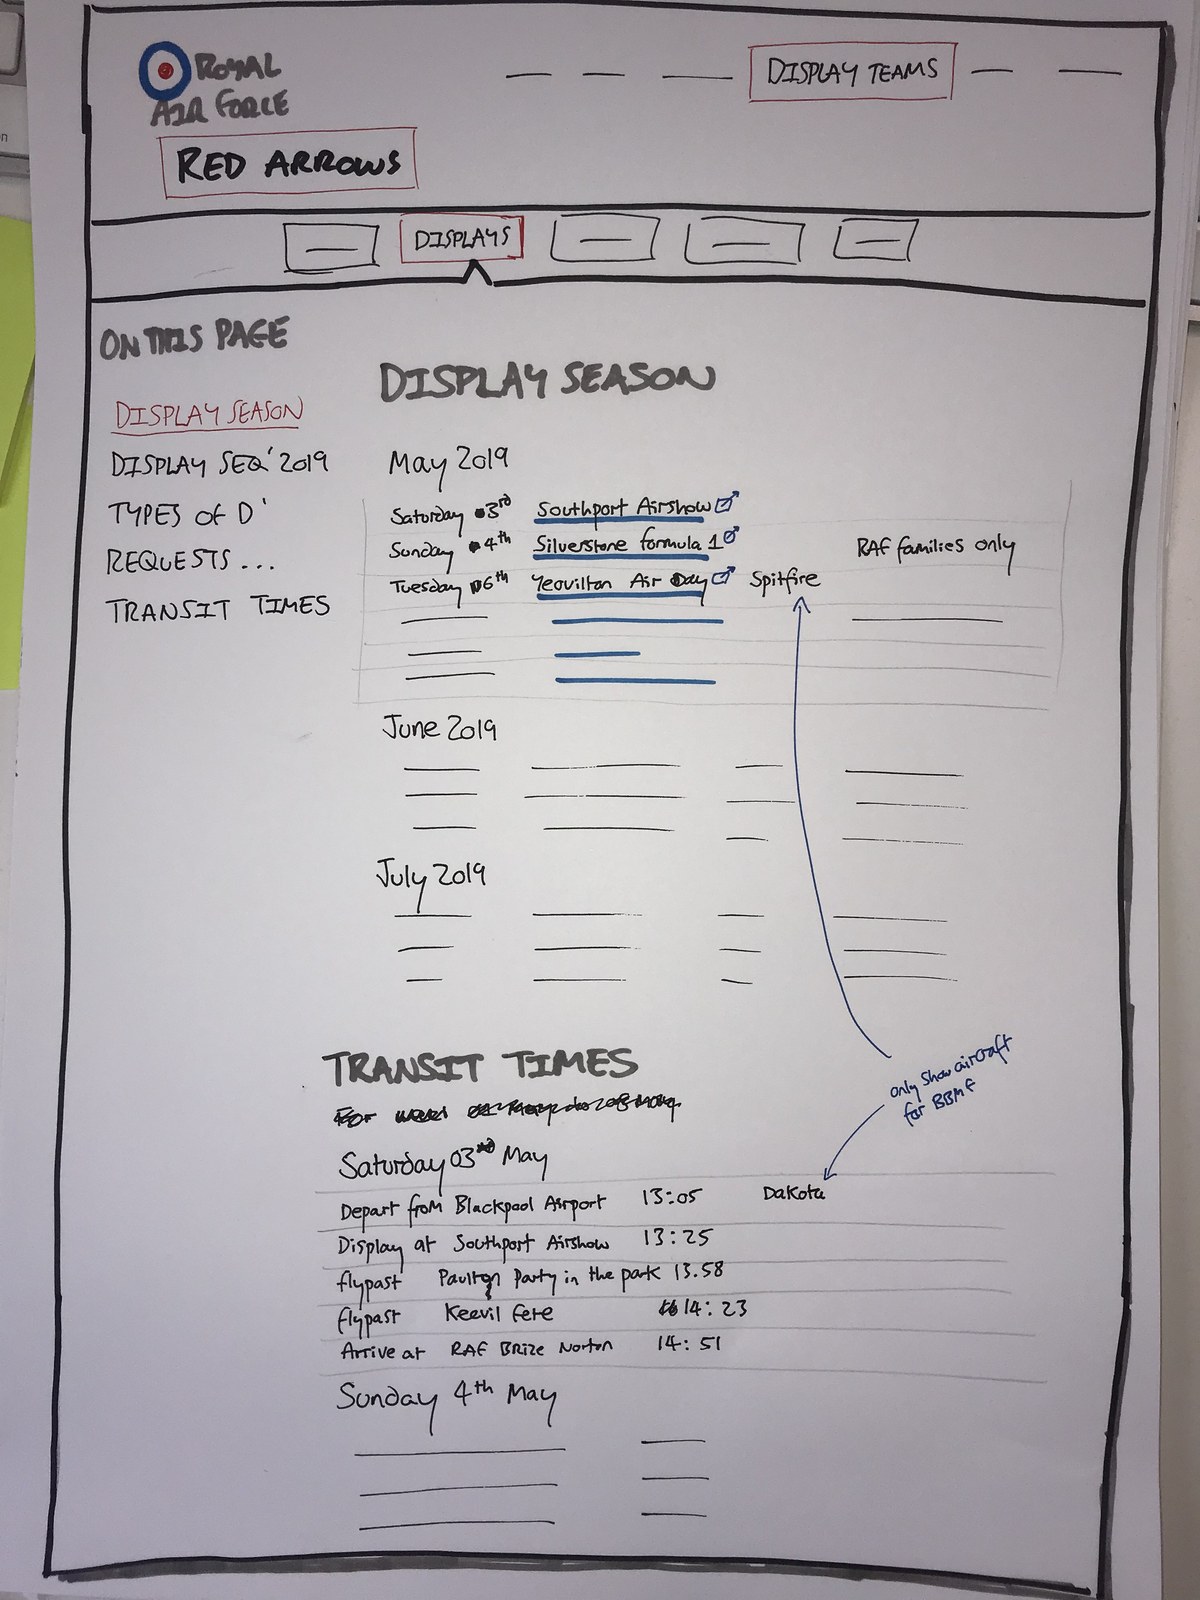 ROYAL
AIR FORCE
DISPLAY TEAMS
RED ARROWS
DISPLAYS
ON THIS PAGE
DISPLAY SEASON
DISPLAY SEQ' 2019
TYPES OF D'
REQUESTS...
TRANSIT TIMES
DISPLAY SEASON
May 2019
Saturday 3rd Southport Airshow
Sunday 4th Silverstone formula 1 RAF families only
Tuesday 6th Yeovilton Air Day Spitfire
June 2019
July 2019
only show aircraft
for BBMF
TRANSIT TIMES
For
Saturday 03rd May
Depart from Blackpool Airport 13:05 Dakota
Display at Southport Airshow 13:25
flypast Paulton Party in the park 13.58
flypast Keevil fete 14:23
Arrive at RAF Brize Norton 14:51
Sunday 4th May